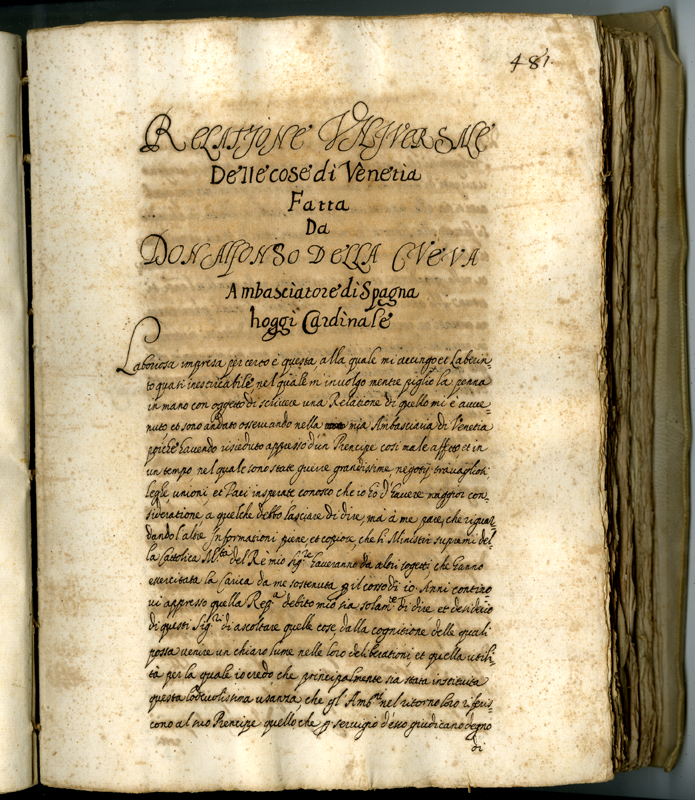 481.
RELATIONE VNIVERSALE
Delle cose di Venetia
Fatta
Da
DON ALFONSO DELLA CVEVA
Ambasciatore di Spagna
hoggi Cardinale
Laboriosa impresa per certo è questa, alla quale mi accingo et Laberin=
to quasi inestricabile nel quale m'involgo mentre piglio la penna
in mano con oggetto di scrivere una Relatione di quello mi è avve=
nuto et sono andato osservando nella mia Ambasciaria di Venetia
poiche havendo risieduto appresso d'un Prencipe così male affetto et in
un tempo nel quale sono state guerre grandissime negotij travagliosi
leghe unioni et Paci insperate conosco che io hò d'havere maggior con=
sideratione a quelche debbo lasciare di dire, mà à me pare, che riguar=
dando l'altre Informationi piene et copiose, che li Ministri supremi del=
la Cattolica M.tà del Rè mio Sig.re haveranno da altri sogetti che hanno
esercitata la Carica da me sostenuta p il corso di io. Anni contino
vi appresso quella Rep.ca debito mio sia solam.te di dire et desiderio
di questi Sig.ri di ascoltare quelle cose, dalla cognitione delle quali
possa venire un chiaro lume nelle loro deliberationi et quella utili=
tà per la quale io credo che principalmente sia stata instituita
questa lodevolissima usanza, che gl'Amb.ri nel ritorno loro riferis=
cono al suo Prencipe quello che p servigio d'esso giudicano degno
di